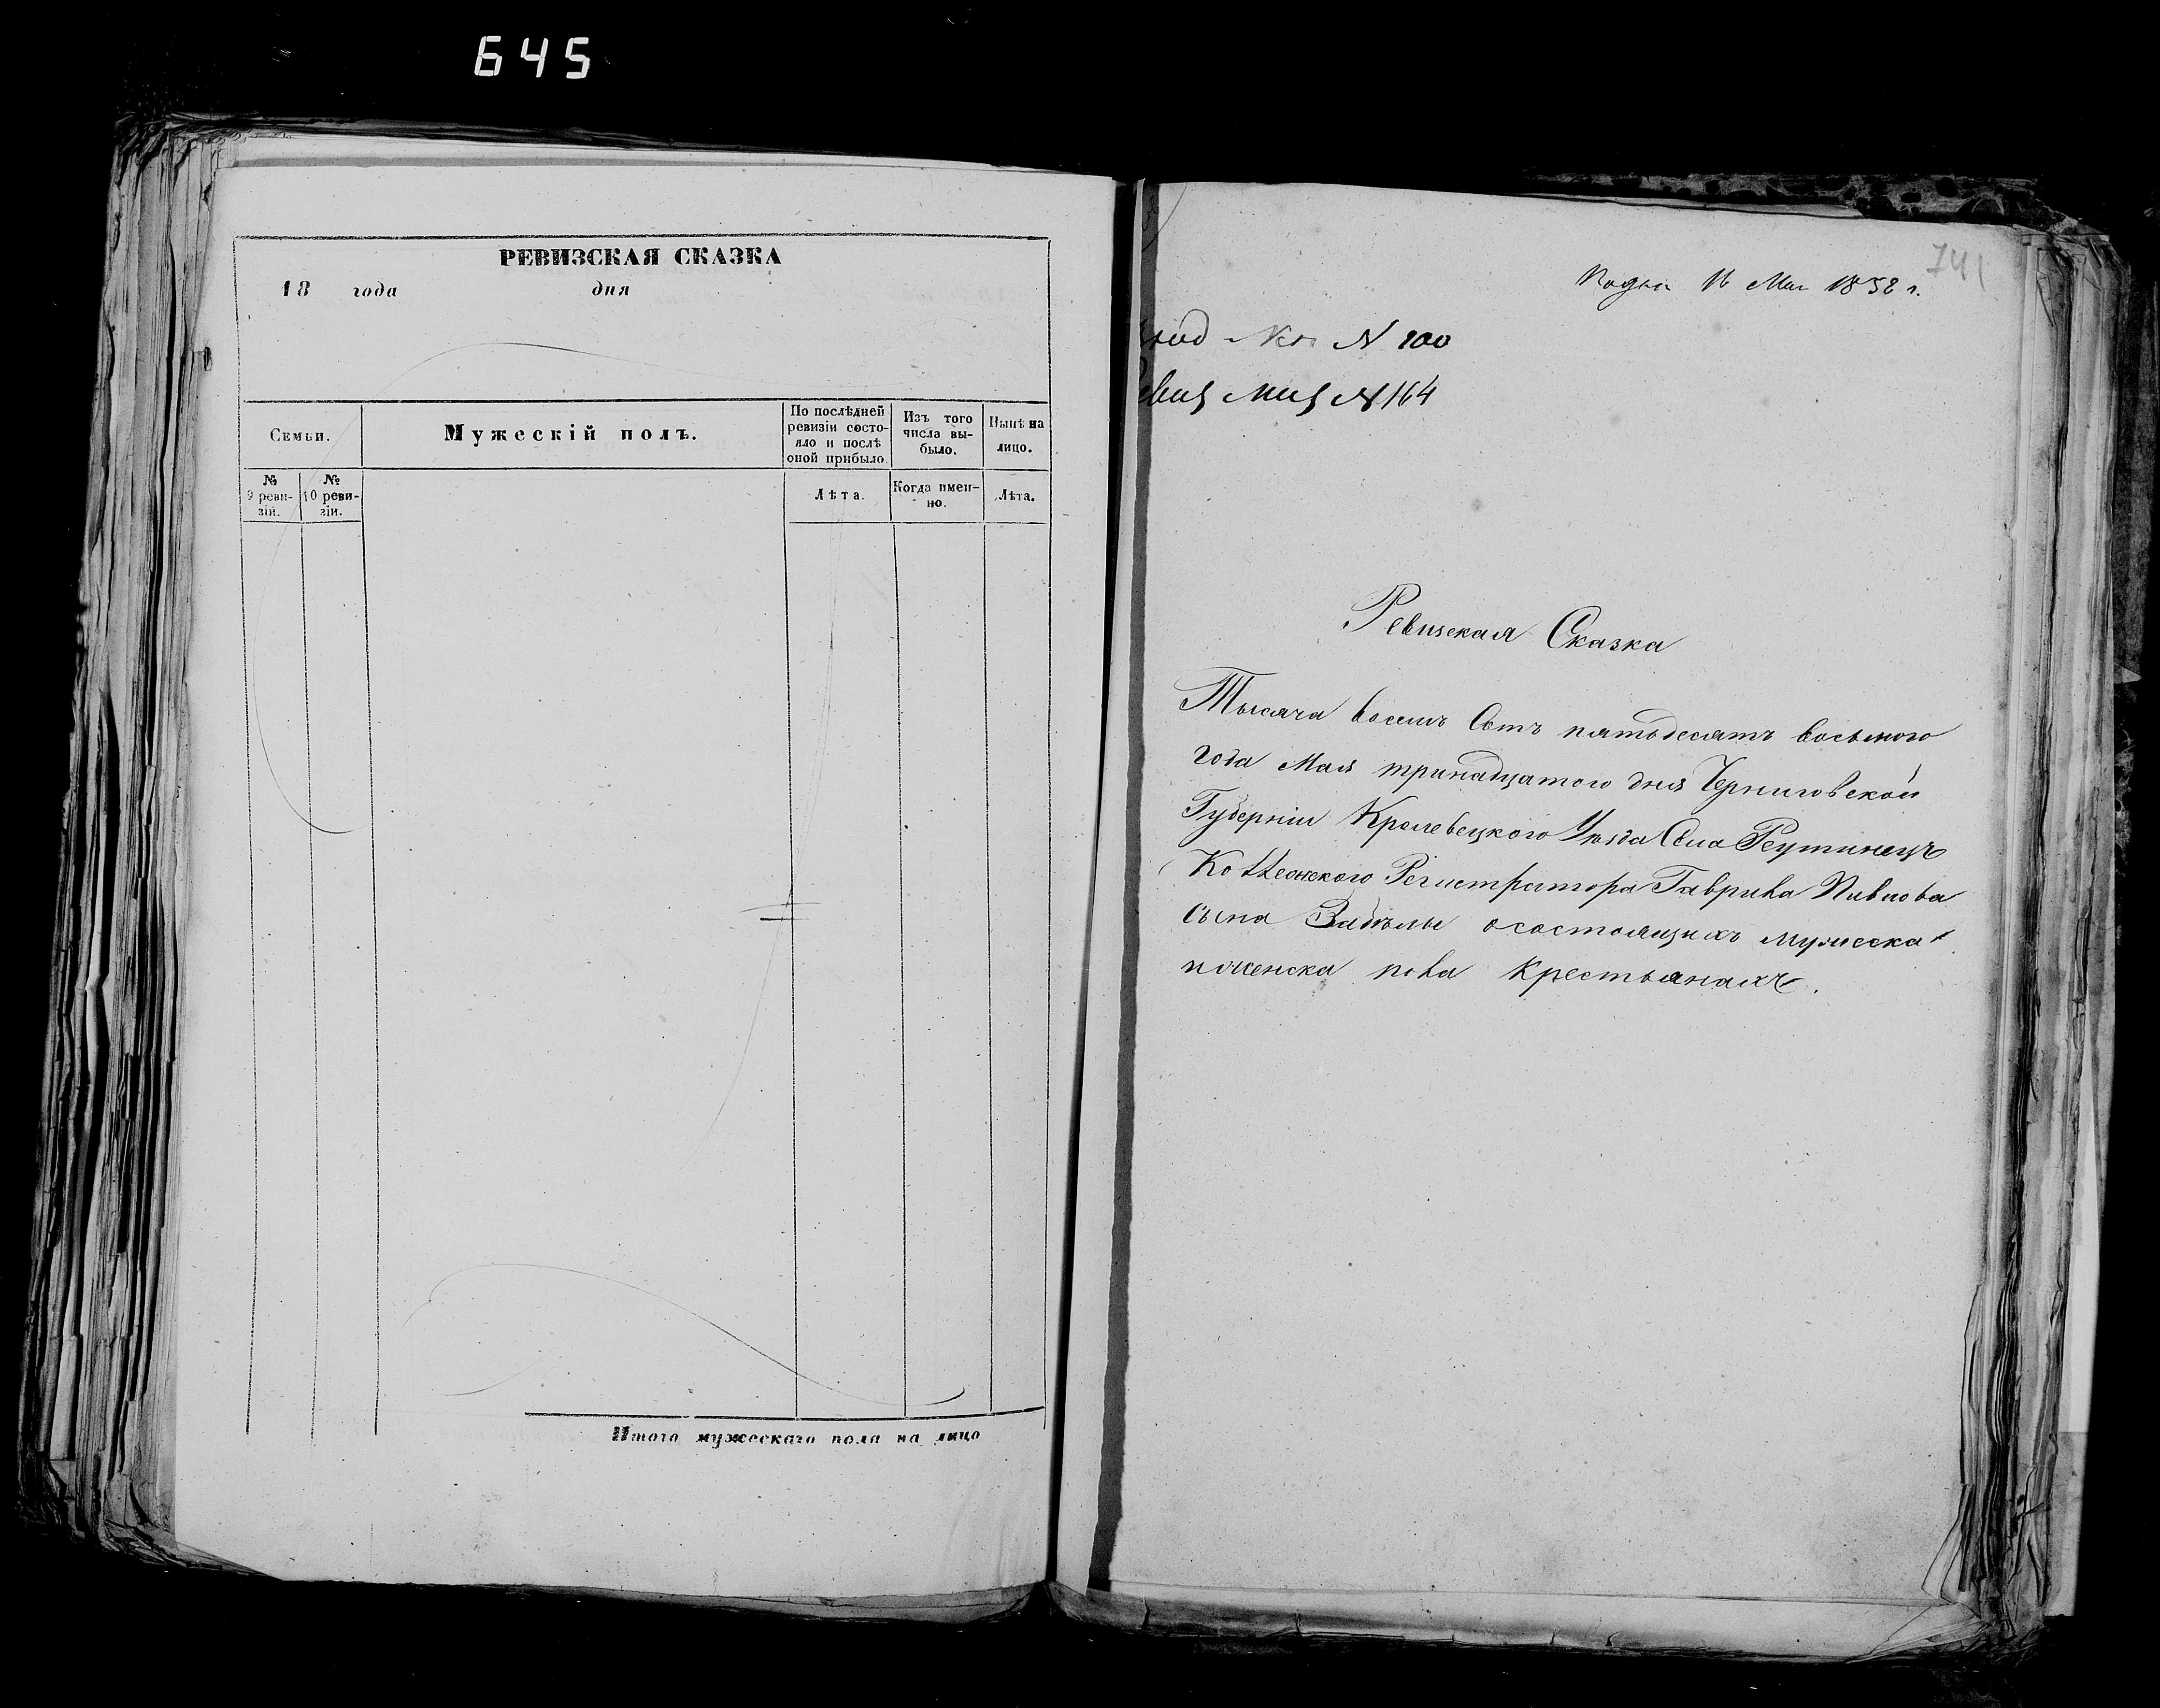 645
РЕВИЗСКАЯ СКАЗКА
18 года дня
Семьи.
Мужескій полъ.
По послѣдней ревизіи состояло и послѣ оной прибыло.
Изъ того числа выбыло.
Нынѣ на лицо.
№ 9 ревизіи.
№ 10 ревизіи.
Лѣта.
Когда именно.
Лѣта.
Итого мужескаго пола на лицо
741
16 Мая 1858 г.
N 100
N 164
Ревизская Сказка
Тысяча восемь Сотъ пятьдесятъ восьмого
года Мая тринадцатого дня Черниговской
Губерніи Кролевецкого Уѣзда Села Реутинецъ
Коллежского Регистратора Гаврила Павлова
сына Забѣлы о состоящихъ мужеска
и женска пола крестьянахъ.